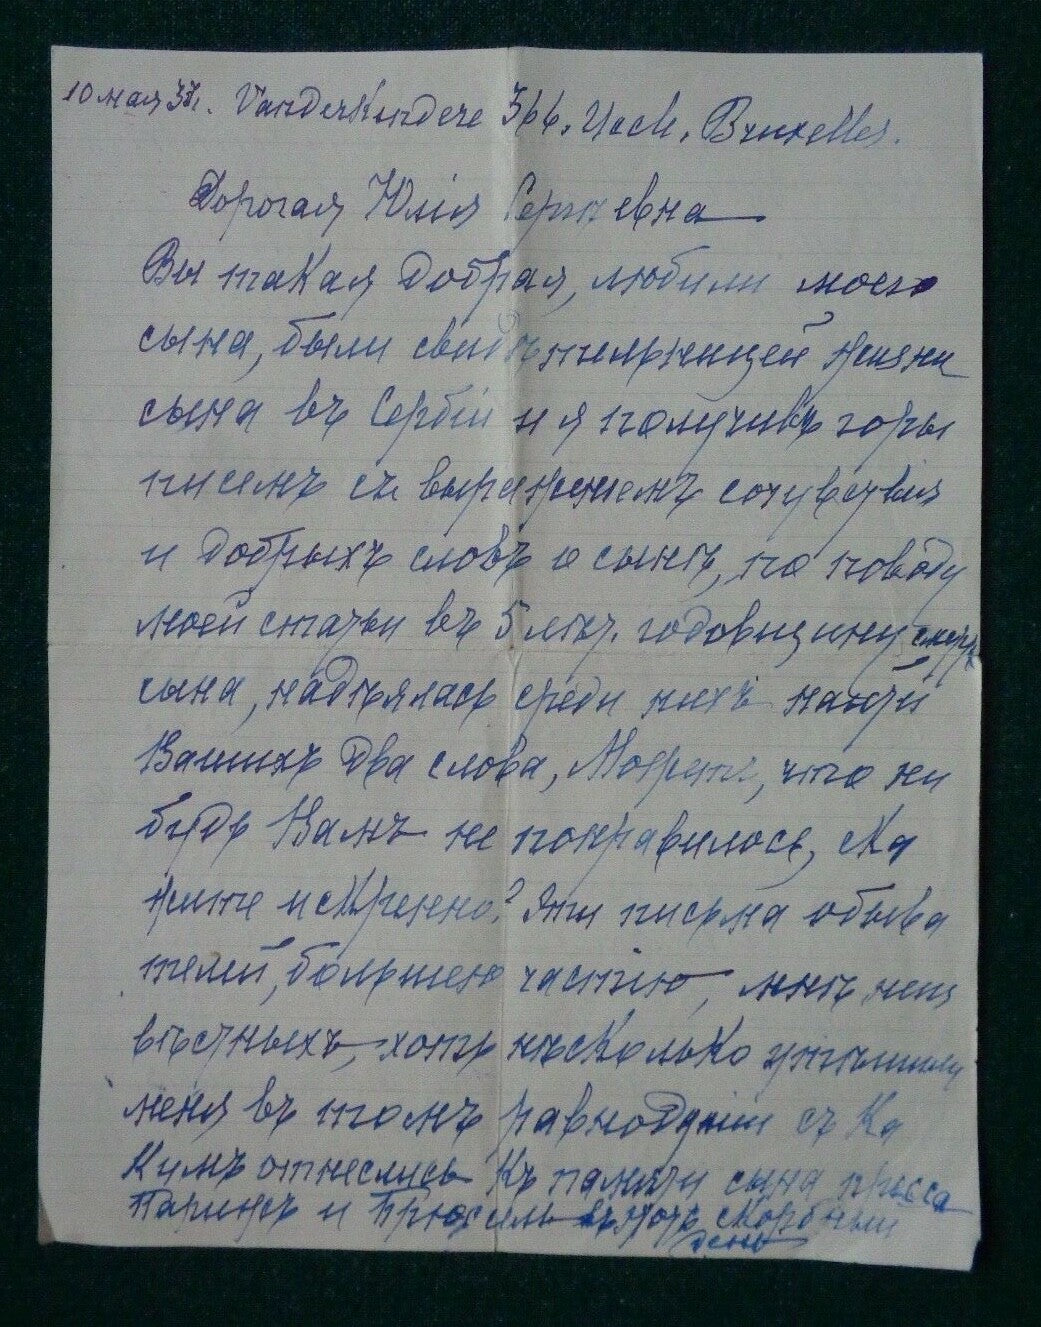 10 мая 33г. Vanderkindere 366. Uccle. Bruxelles.
Дорогая Юлія Сергѣевна
Вы такая добрая, любили моего
сына, были свидѣтельницей жизни
сына въ Сербіи и я получивъ горы
писемъ съ выраженіемъ сочувствія
и добрыхъ словъ о сынѣ, по поводу
моей статьи въ 5 лѣт. годовщину смерти
сына, надѣялась среди нихъ найти
Вашихъ два слова, Можетъ, что ни
будь Вамъ не понравилось, ска
жите искренно? Эти письма обыва
телей, большею частію, мнѣ неиз
вѣстныхъ, хоть нѣсколько утѣшили
меня въ томъ равнодушіи съ ка
кимъ отнеслись къ памяти сына пресса
Парижъ и Брюссель въ этотъ скорбный
день